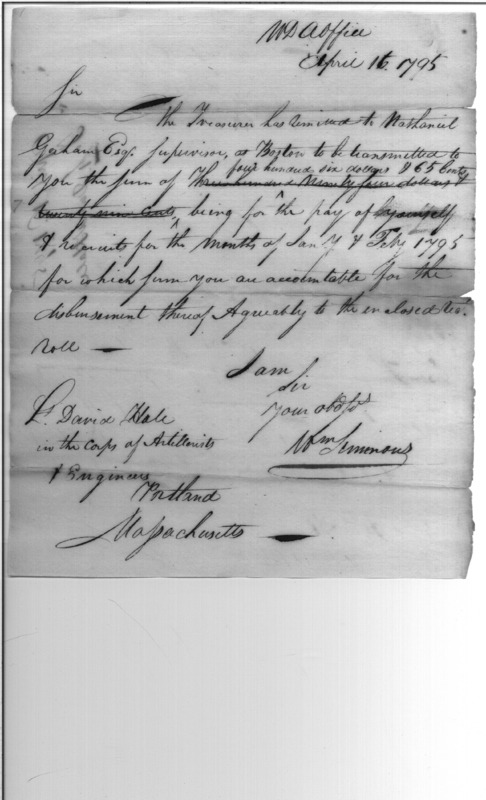 WD A Office
April 16. 1795
Sir
the Treasurer has remitted to Nathaniel
Gorham Esq. Supervisor, at Boston to be transmitted to
four hundred six dollars & 65 Cents
you the sum of Three hundred Ninety four dollars &
twenty nine cents, being for the pay of
& recruits for the months of Jany & Feby 1795
for which sum you are accountable for the
disbursement thereof Agreeably to the enclosed
roll —
I am
Sir
Your obd
Wm Simmons
Lt. David Hale
in the Corps of Artillerists
& Engineers
Portland
Massachusetts —